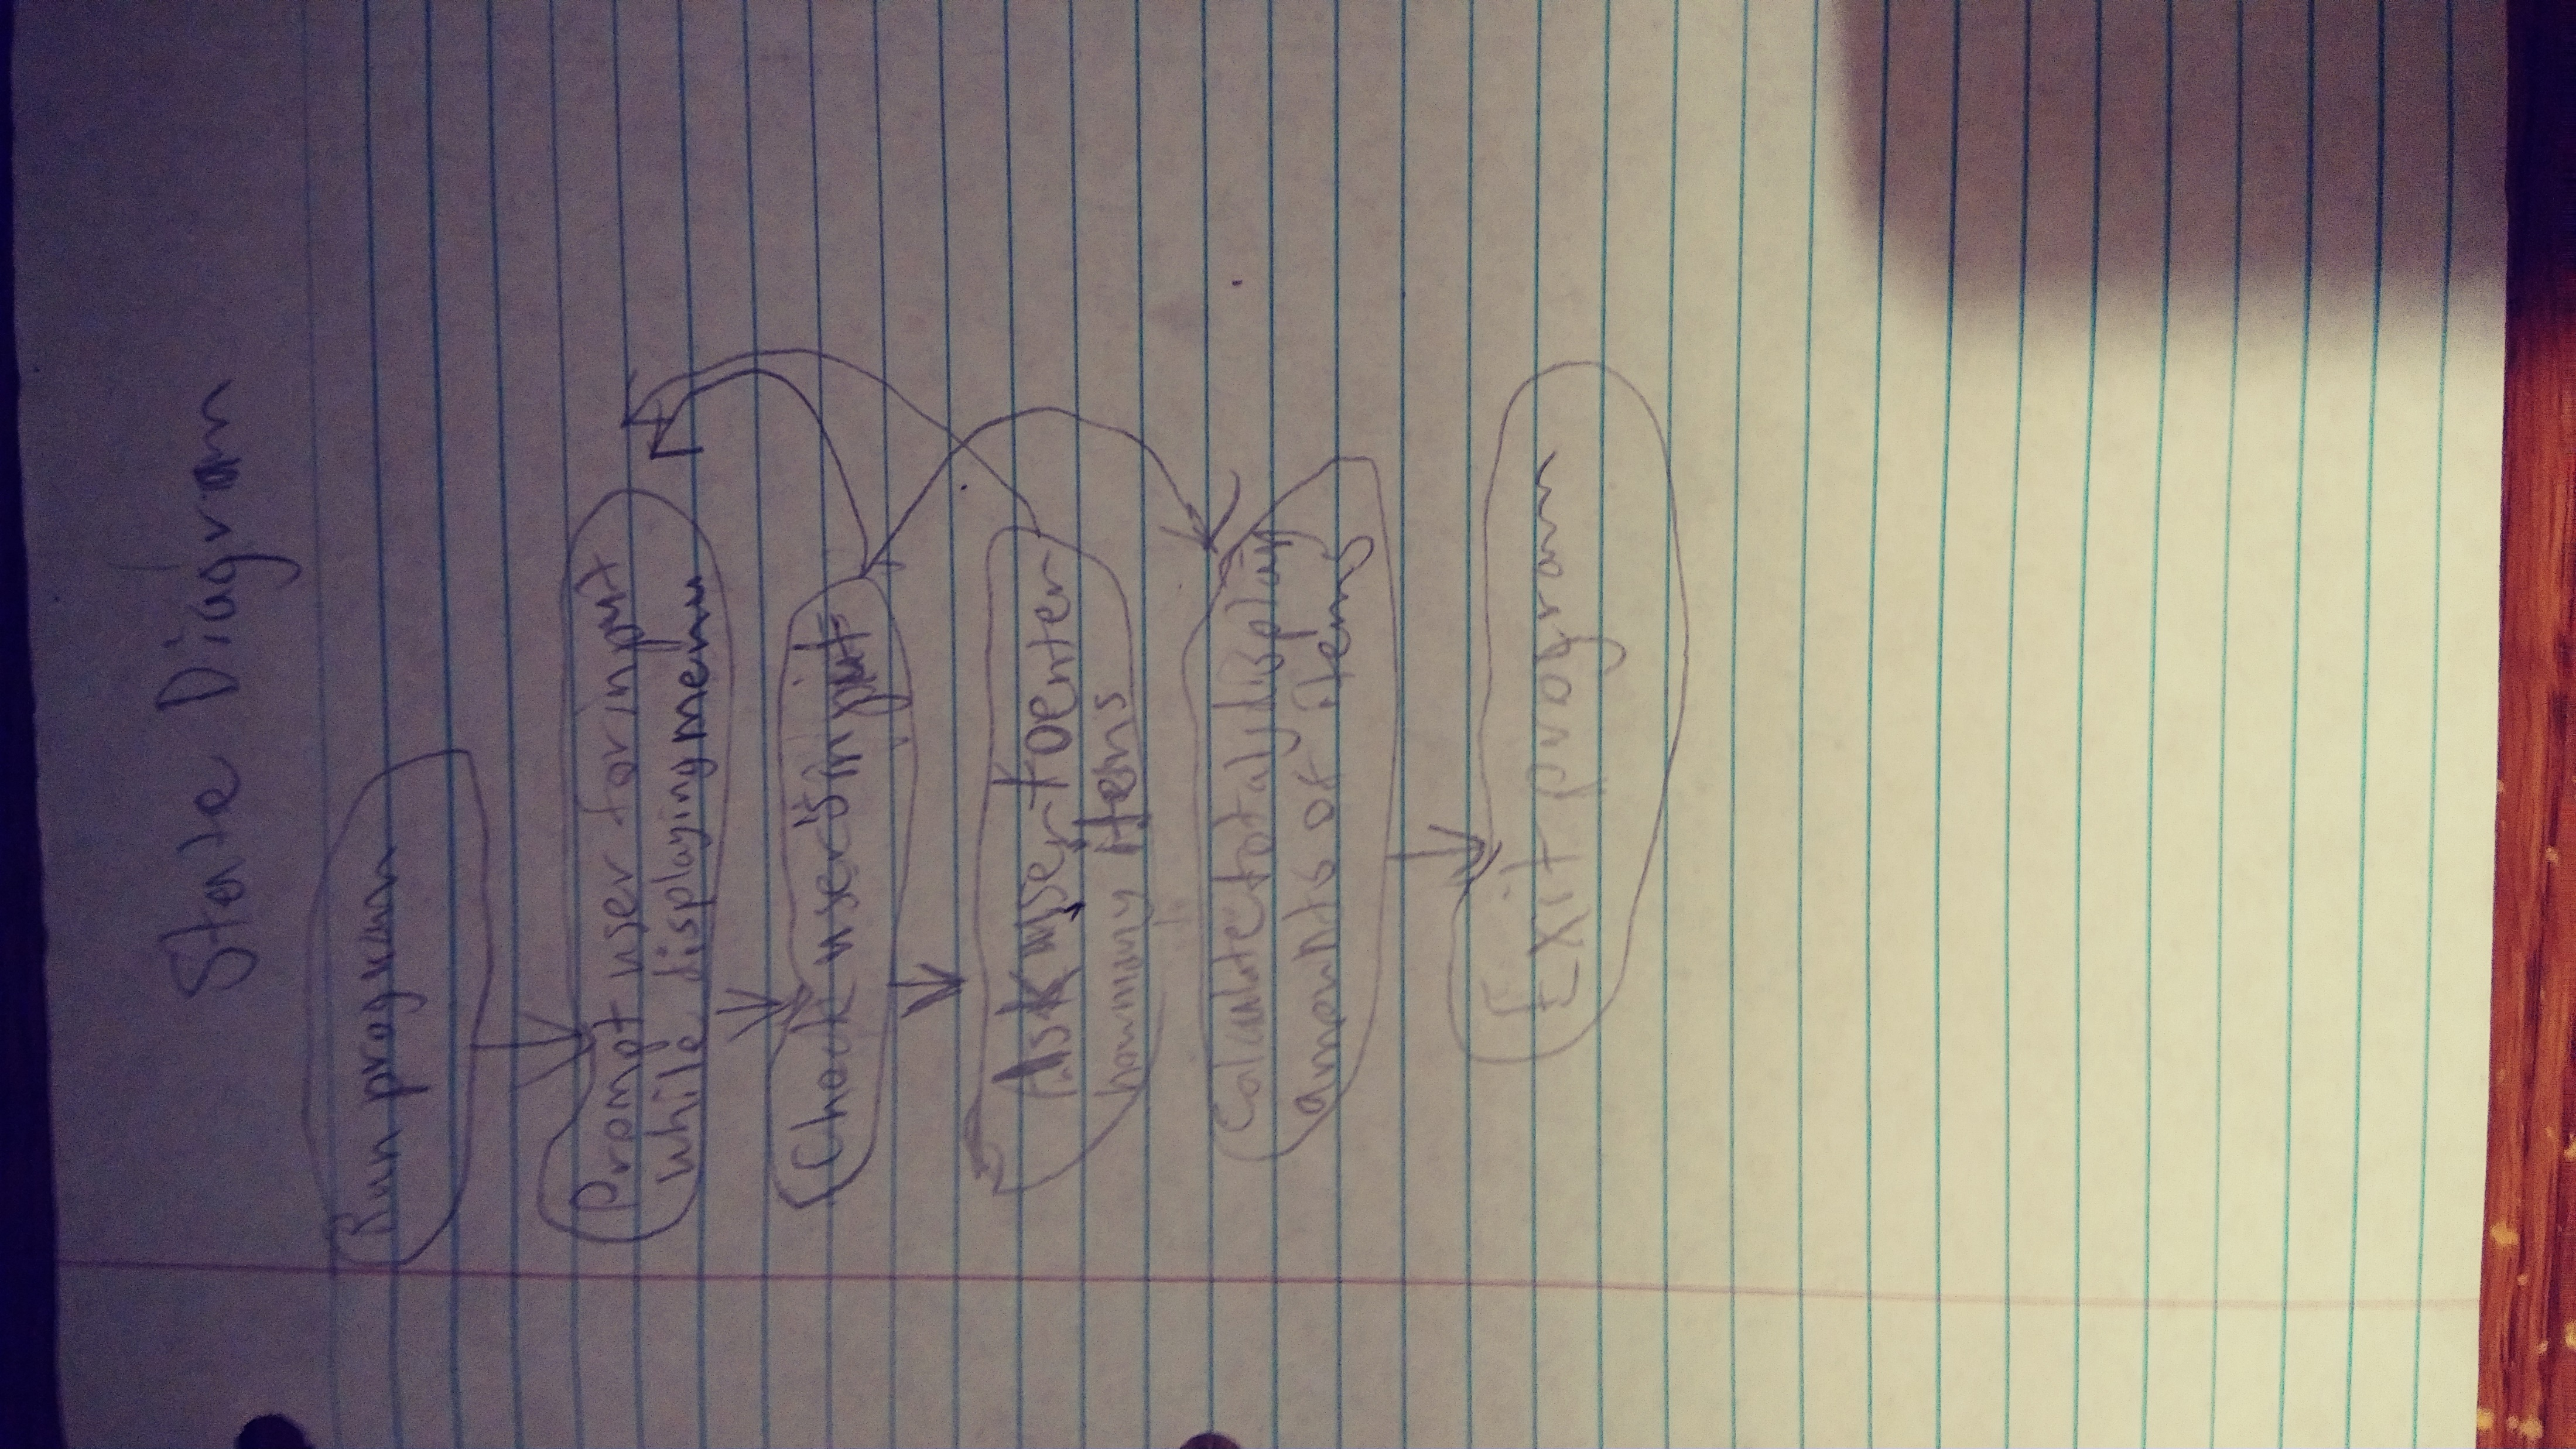 State Diagram
Run program
Prompt user for input
while displaying menu
Check user's input
Ask user to enter
how many items
Calculate total, display
amounts of items
Exit program